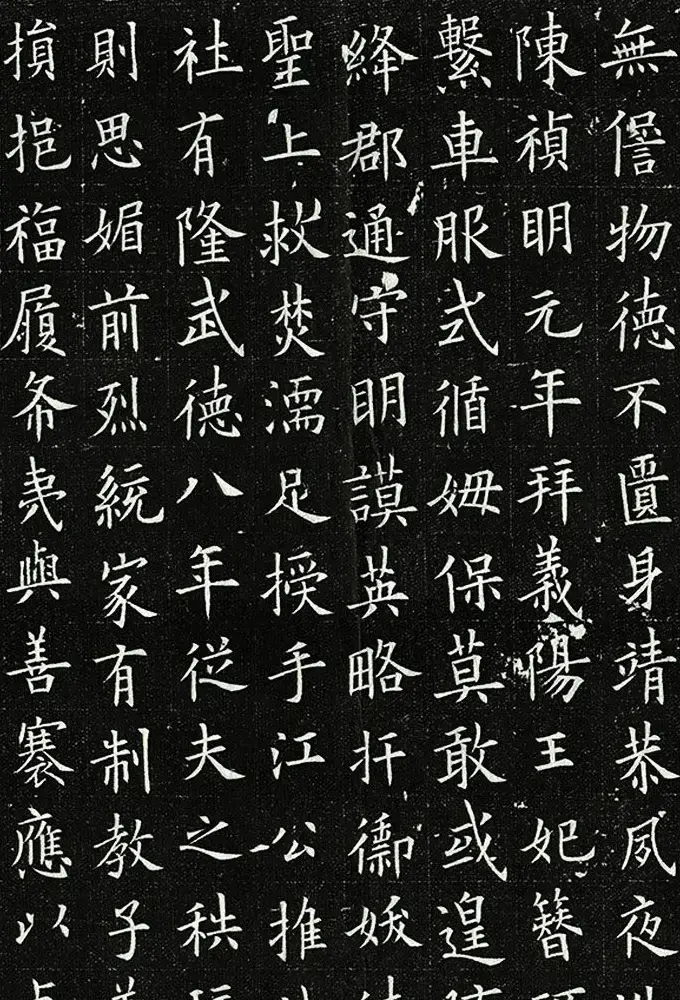 無物德不匱身靖恭夙夜
陳禎明元年拜義陽王妃簪
繫車服式循姆保莫敢或遑
絳郡通守明謨英略扞禦妖
聖上救焚濡足授手江公推
社有隆武德八年從夫之秩
則思媚前烈統家有制教子
損挹福履希夷與善褰應以